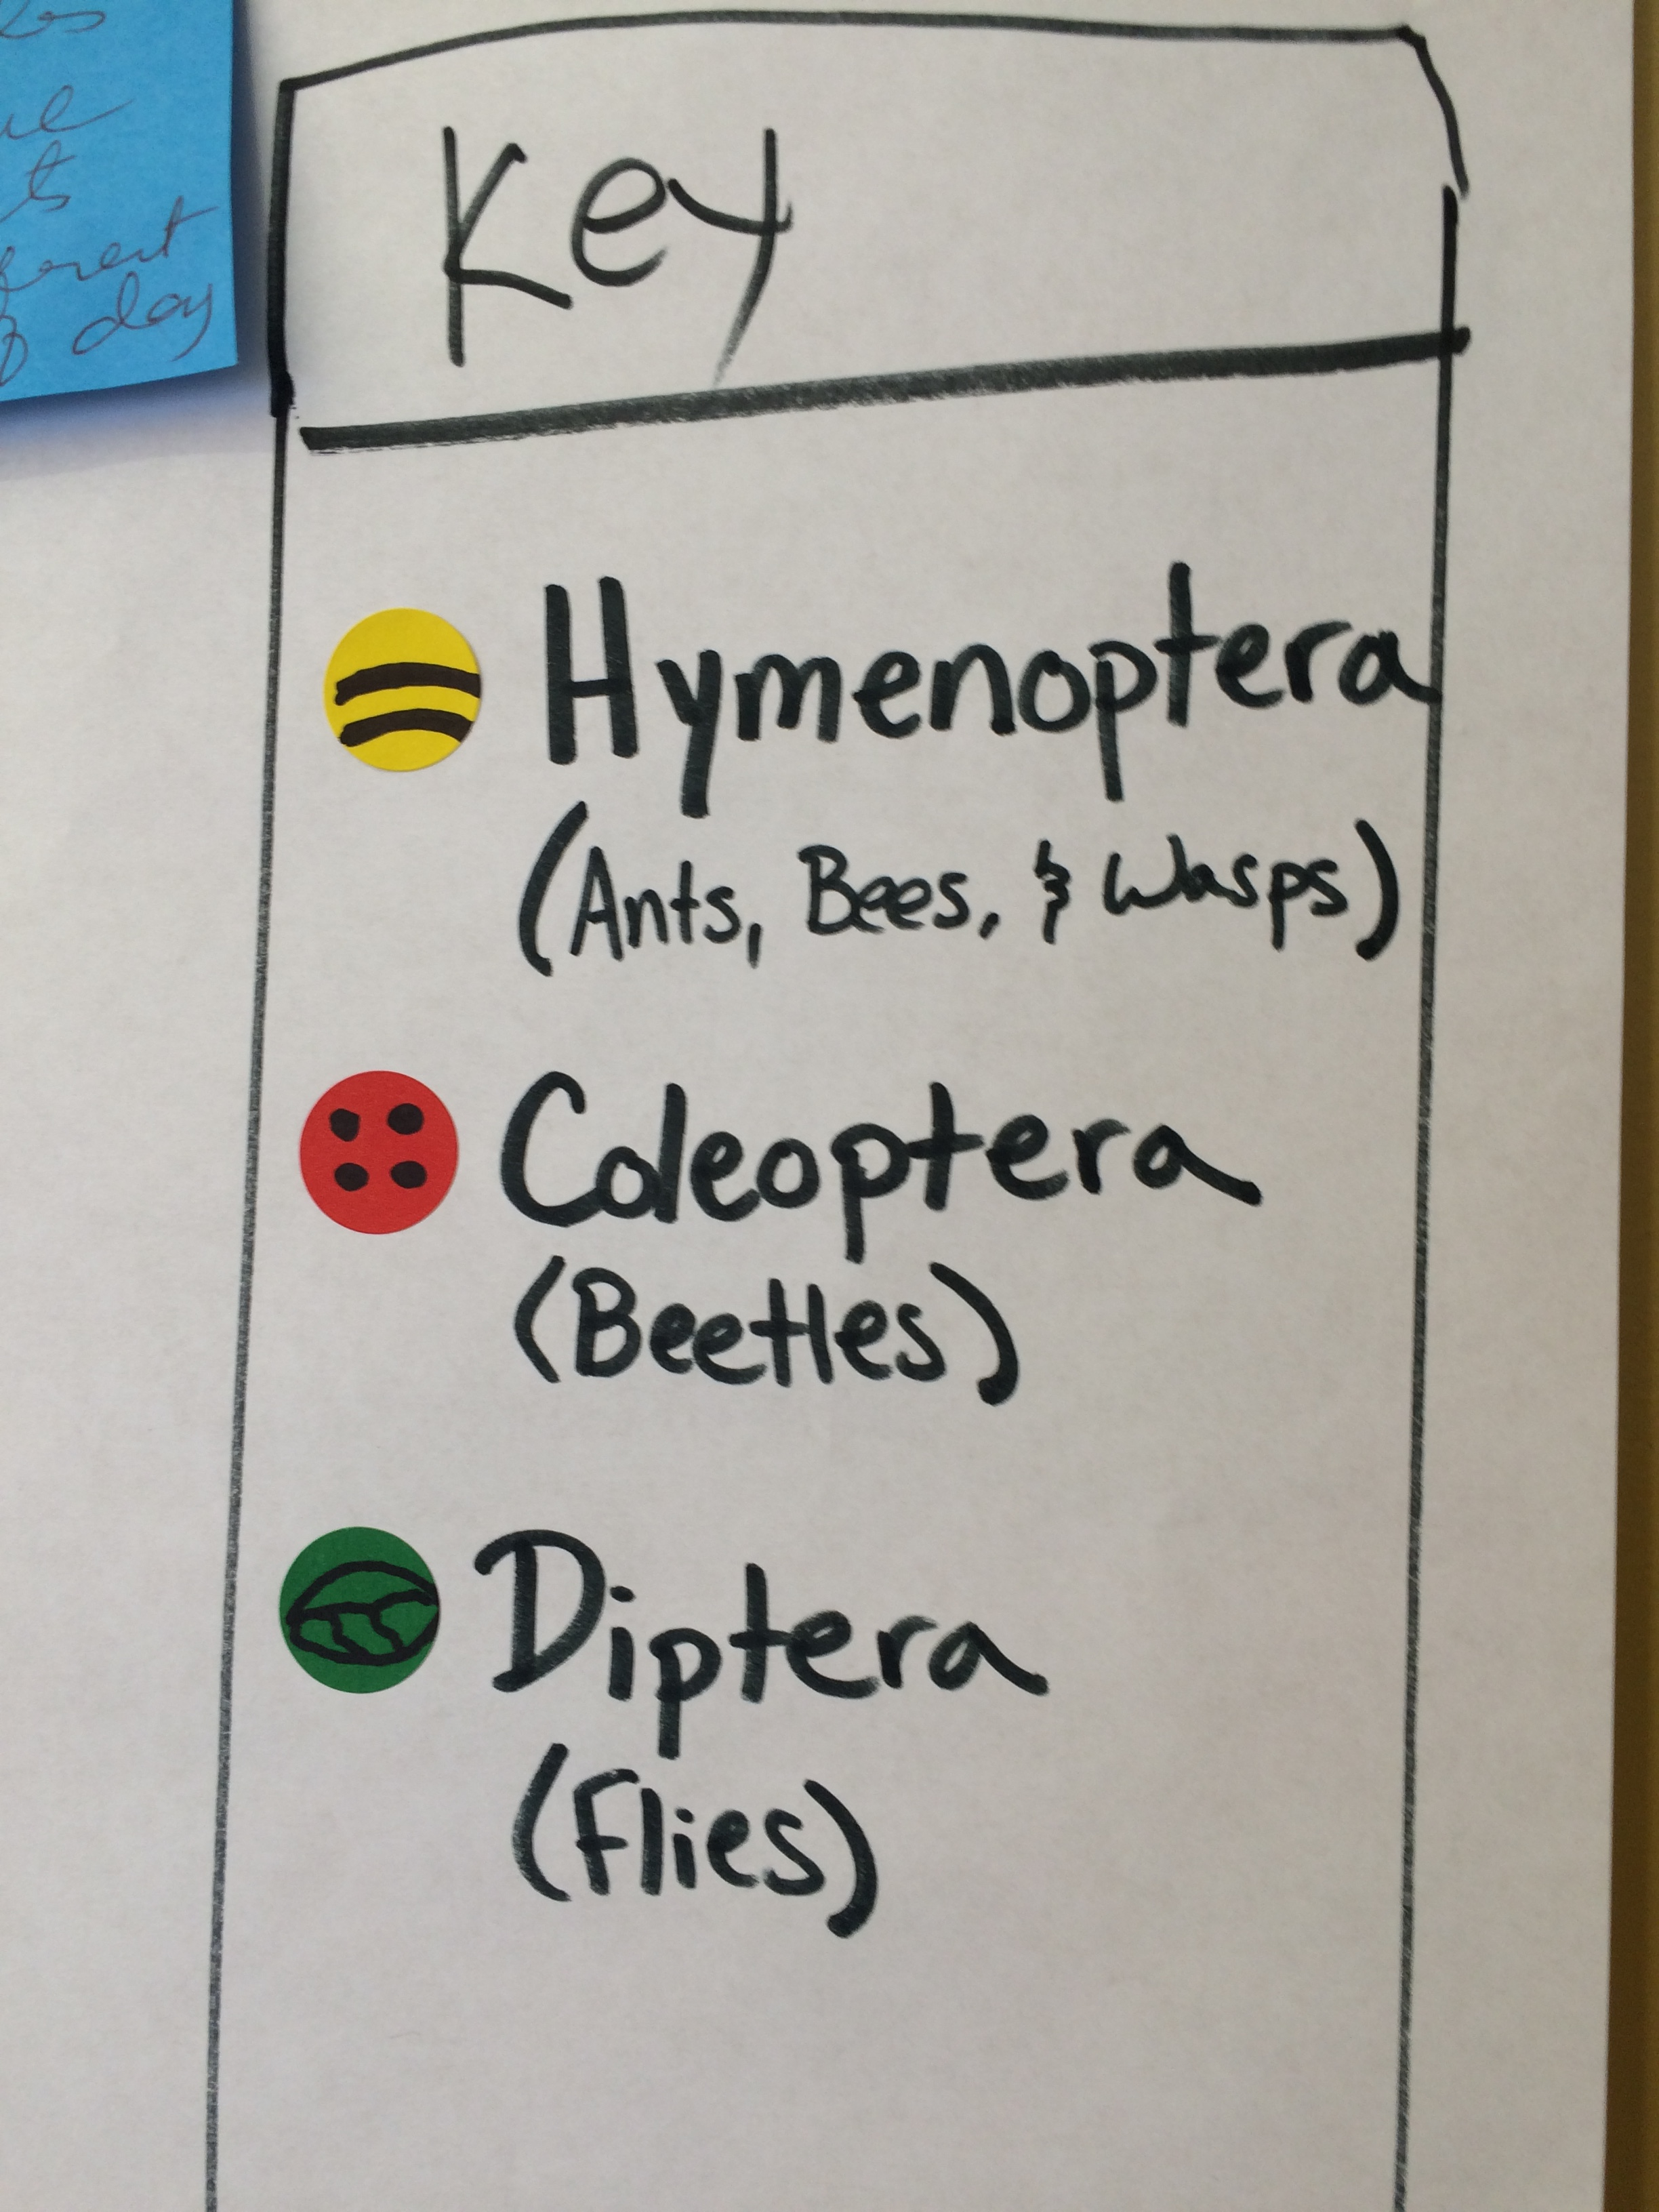 ferent
day
Key
Hymenoptera
(Ants, Bees, & Wasps)
Coleoptera
(Beetles)
Diptera
(Flies)